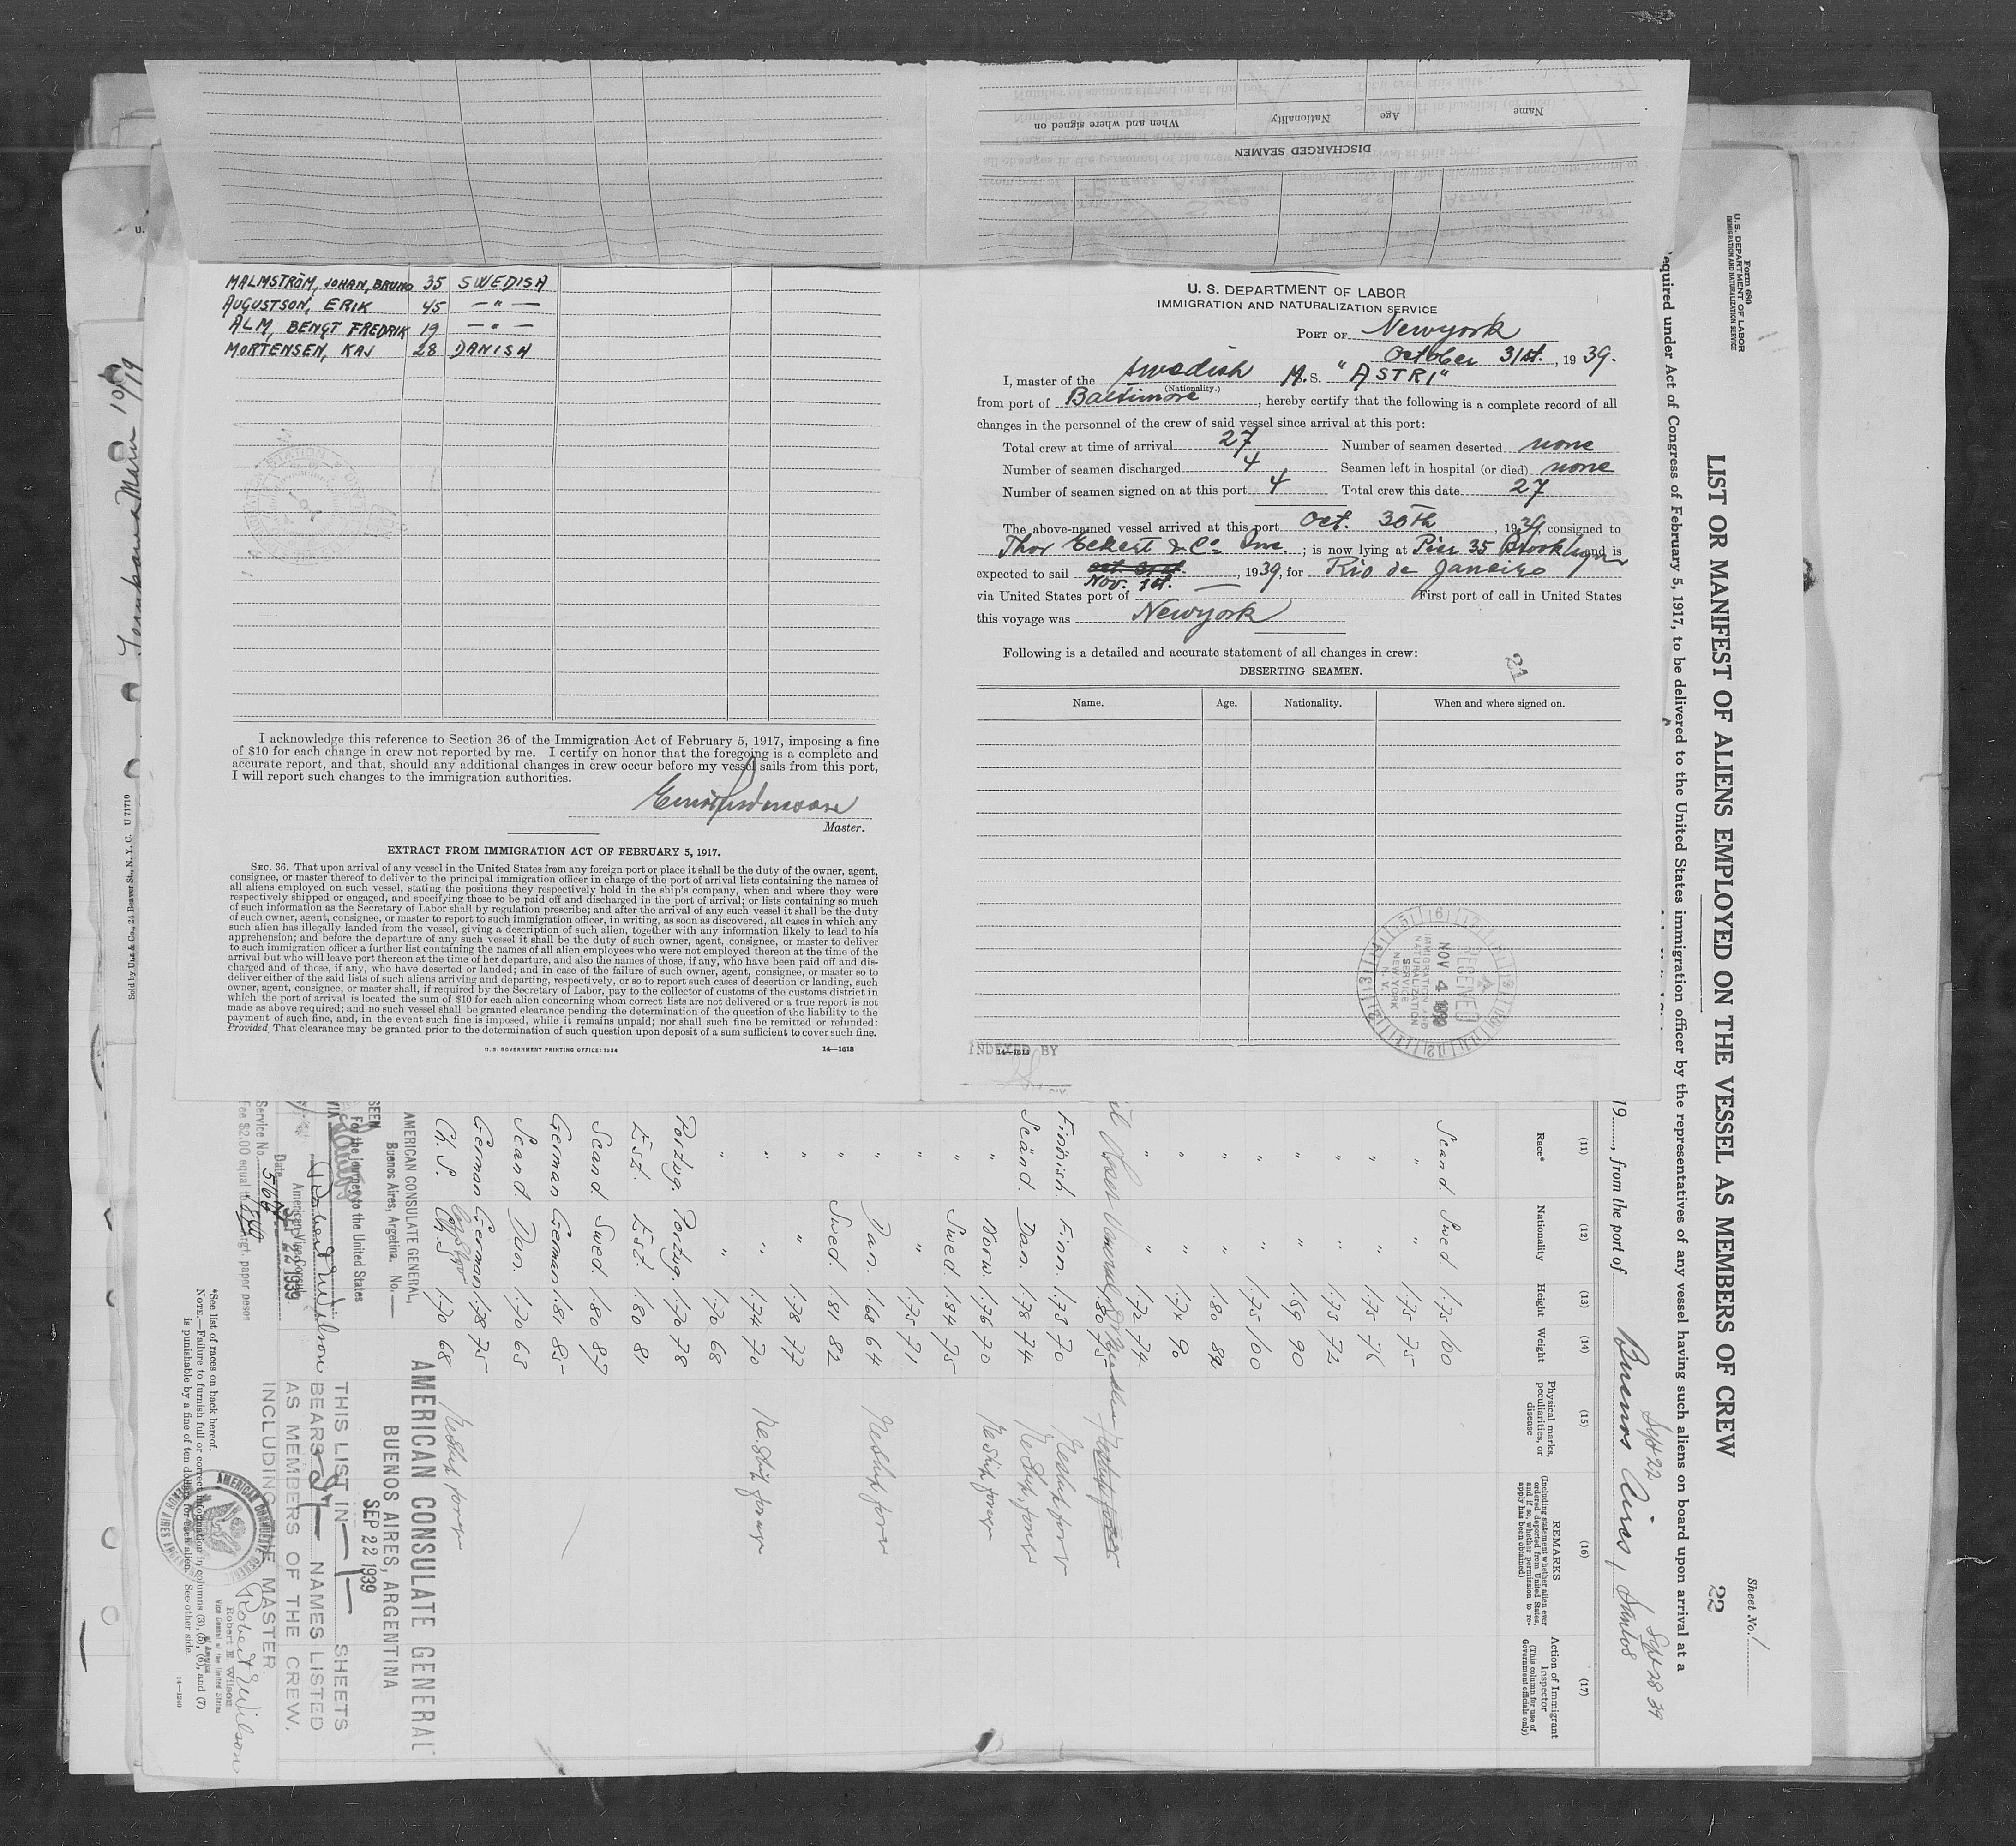 MALMSTRÖM, JOHAN, BRUNO 35 SWEDISH
AUGUSTSON, ERIK 45 — " —
ALM, BENGT FREDRIK 19 — " —
MORTENSEN, KAJ 28 DANISH
I acknowledge this reference to Section 36 of the Immigration Act of February 5, 1917, imposing a fine
of $10 for each change in crew not reported by me. I certify on honor that the foregoing is a complete and
accurate report, and that, should any additional changes in crew occur before my vessel sails from this port,
I will report such changes to the immigration authorities.
Master.
EXTRACT FROM IMMIGRATION ACT OF FEBRUARY 5, 1917.
SEC. 36. That upon arrival of any vessel in the United States from any foreign port or place it shall be the duty of the owner, agent,
consignee, or master thereof to deliver to the principal immigration officer in charge of the port of arrival lists containing the names of
all aliens employed on such vessel, stating the positions they respectively hold in the ship's company, when and where they were
respectively shipped or engaged, and specifying those to be paid off and discharged in the port of arrival; or lists containing so much
of such information as the Secretary of Labor shall by regulation prescribe; and after the arrival of any such vessel it shall be the duty
of such owner, agent, consignee, or master to report to such immigration officer, in writing, as soon as discovered, all cases in which any
such alien has illegally landed from the vessel, giving a description of such alien, together with any information likely to lead to his
apprehension; and before the departure of any such vessel it shall be the duty of such owner, agent, consignee, or master to deliver
to such immigration officer a further list containing the names of all alien employees who were not employed thereon at the time of the
arrival but who will leave port thereon at the time of her departure, and also the names of those, if any, who have been paid off and dis-
charged and of those, if any, who have deserted or landed; and in case of the failure of such owner, agent, consignee, or master so to
deliver either of the said lists of such aliens arriving and departing, respectively, or so to report such cases of desertion or landing, such
owner, agent, consignee, or master shall, if required by the Secretary of Labor, pay to the collector of customs of the customs district in
which the port of arrival is located the sum of $10 for each alien concerning whom correct lists are not delivered or a true report is not
made as above required; and no such vessel shall be granted clearance pending the determination of the question of the liability to the
payment of such fine, and, in the event such fine is imposed, while it remains unpaid; nor shall such fine be remitted or refunded:
Provided, That clearance may be granted prior to the determination of such question upon deposit of a sum sufficient to cover such fine.
U.S. GOVERNMENT PRINTING OFFICE: 1934 14—1613
DISCHARGED SEAMEN
Name Age Nationality When and where signed on
U. S. DEPARTMENT OF LABOR
IMMIGRATION AND NATURALIZATION SERVICE
PORT OF Newyork
October 31st., 1939.
I, master of the Swedish M.S. "ASTRI"
(Nationality.)
from port of Baltimore, hereby certify that the following is a complete record of all
changes in the personnel of the crew of said vessel since arrival at this port:
Total crew at time of arrival 27 Number of seamen deserted none
Number of seamen discharged 4 Seamen left in hospital (or died) none
Number of seamen signed on at this port 4 Total crew this date 27
The above-named vessel arrived at this port Oct. 30th, 1939 consigned to
Thor Eckert & Co. Inc.; is now lying at Pier 35 Brooklyn and is
expected to sail Oct. 31st. Nov. 1st., 1939, for Rio de Janeiro
via United States port of — First port of call in United States
this voyage was Newyork
Following is a detailed and accurate statement of all changes in crew:
21
DESERTING SEAMEN.
Name. Age. Nationality. When and where signed on.
RECEIVED
NOV 4 1939
IMMIGRATION AND
NATURALIZATION
SERVICE
NEW YORK
N. Y.
INDEXED BY
14—1613
Form 689
U. S. DEPARTMENT OF LABOR
IMMIGRATION AND NATURALIZATION SERVICE
Sheet No. 1
LIST OR MANIFEST OF ALIENS EMPLOYED ON THE VESSEL AS MEMBERS OF CREW
22
required under Act of Congress of February 5, 1917, to be delivered to the United States immigration officer by the representatives of any vessel having such aliens on board upon arrival at a
Sept 22 - Sept 28 39
19, from the port of Buenos Aires, Santos
(11) (12) (13) (14) (15) (16) (17)
Race* Nationality Height Weight Physical marks, peculiarities, or disease
REMARKS
(Including statement whether alien ever ordered deported from United States, and if so, whether permission to reapply has been obtained)
Action of Immigrant Inspector
(This column for use of Government officials only)
Scand. Swed. 1.75 100
" " 1.75 75
" " 1.75 76
" " 1.73 72
" " 1.69 90
" " 1.75 100
" " 1.80 82
" " 1.74 90
" " 1.72 74
Finnish. Finn. 1.78 70
Scand. Dan. 1.78 74
" Norw. 1.76 70
" Swed. 1.84 75
" " 1.75 71
" Dan. 1.68 64
" Swed. 1.81 82
" " 1.78 77
" " 1.74 70
" " 1.70 68
Portug. Portug. 1.70 78
Est. Est. 1.80 81
Scand Swed. 1.80 87
German German 1.81 85
Scand. Dan. 1.70 65
German German 1.78 75
Ch. S. Ch. S 1.70 68
AMERICAN CONSULATE GENERAL,
Buenos Aires, Argentina. No. —
SEEN
For the journey to the United States
VIA
Robert E. Wilson
American Vice Consul
Date SEP 22 1939
Service No. 5166
Fee $2.00 equal to Argt. paper pesos
AMERICAN CONSULATE GENERAL
BUENOS AIRES, ARGENTINA
SEP 22 1939
THIS LIST IN —1— SHEETS
BEARS 27 NAMES LISTED
AS MEMBERS OF THE CREW.
INCLUDING THE MASTER.
Robert E Wilson
Robert E. Wilson
Vice Consul of the United States
of America
AMERICAN CONSULATE GENERAL
BUENOS AIRES, ARGENTINA
*See list of races on back hereof.
NOTE.—Failure to furnish full or correct information in columns (3), (5), (6), and (7)
is punishable by a fine of ten dollars for each alien. See other side.
14—1240
10/19
Sold by Unz & Co., 24 Beaver St., N. Y. C. U 71710